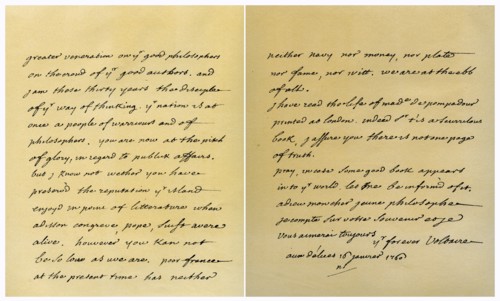 greater veneration on yr good philosophers
on the croud of yr good authors. and
j am these thirty years the disciple
of yr way of thinking. yr nation is at
once a people of warriours and of
philosophers. you are now at the pitch
of glory, in regard to publick affairs.
but j know not wether you have
preserv'd the reputation yr island
enjoy'd in point of litterature when
adison congreve, pope, swift, were
alive. however you kan not
be so low as we are. poor france
at the present time has neither
neither navy nor money, nor plate
nor fame, nor witt. we are at the ebb
of all.
j have read the life of made de pompadour
printed at london. indeed Sr t'is a scurrilous
book, j assure you there is not one page
of truth.
pray, in case some good book appears
in to yr world let me be inform'd of it.
adieu mon cher jeune philosophe
je compte sur votre souvenir et je
vous aimerai toujours
yr forever Voltaire
aux délices 16 janvier 1760